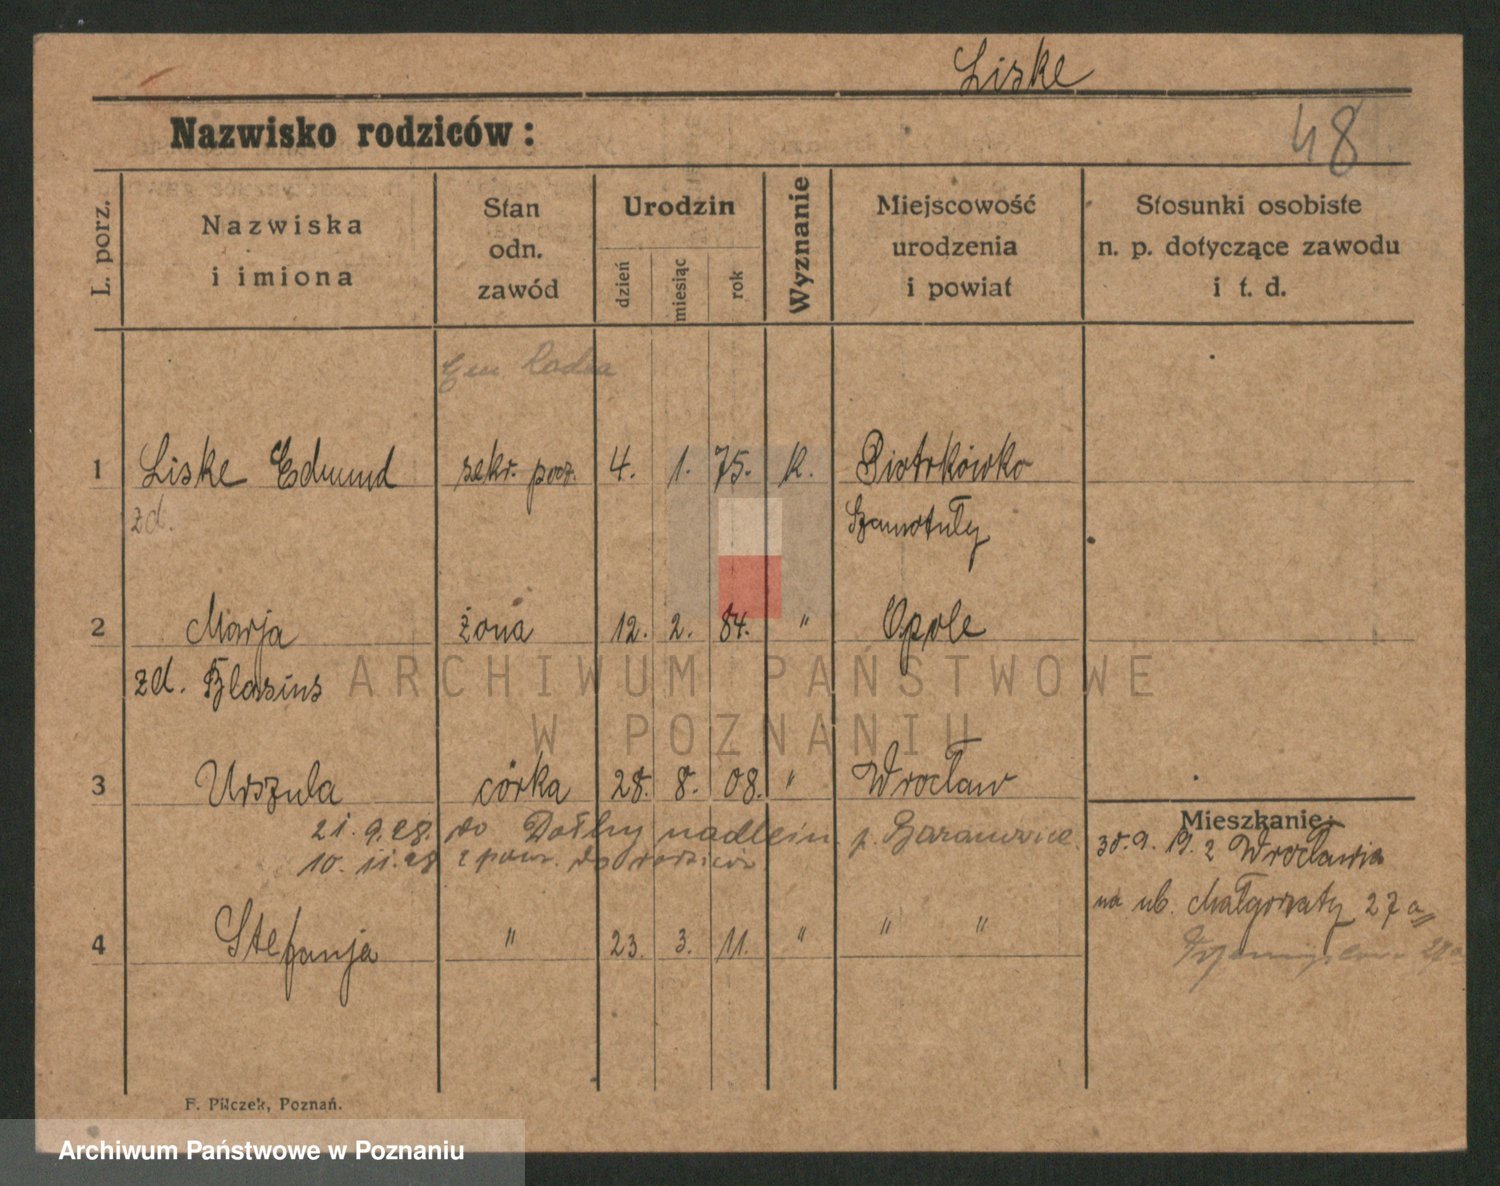 Liske
Nazwisko rodziców:
48
L. porz.
Nazwiska
i imiona
Stan
odn.
zawód
Urodzin
dzień
miesiąc
rok
Wyznanie
Miejscowość
urodzenia
i powiat
Stosunki osobiste
n. p. dotyczące zawodu
i t. d.
Em Radca
1 Liske Edmund sekr. pocz. 4. 1. 75. k. Piotrkówko
zd. Szamotuły
2 Marja żona 12. 2. 84. " Opole
zd. Blasius
3 Urszula córka 28. 8. 08. " Wrocław
21. 9. 28. do nadleśn. p.
10. 11. 28 z pow. do rodziców
Mieszkanie:
30. 9. 19. z Wrocławia
na ul. Małgorzaty 27a
4 Stefanja " 23. 3. 11. " " "
F. Pilczek, Poznań.
ARCHIWUM PAŃSTWOWE
W POZNANIU
Archiwum Państwowe w Poznaniu